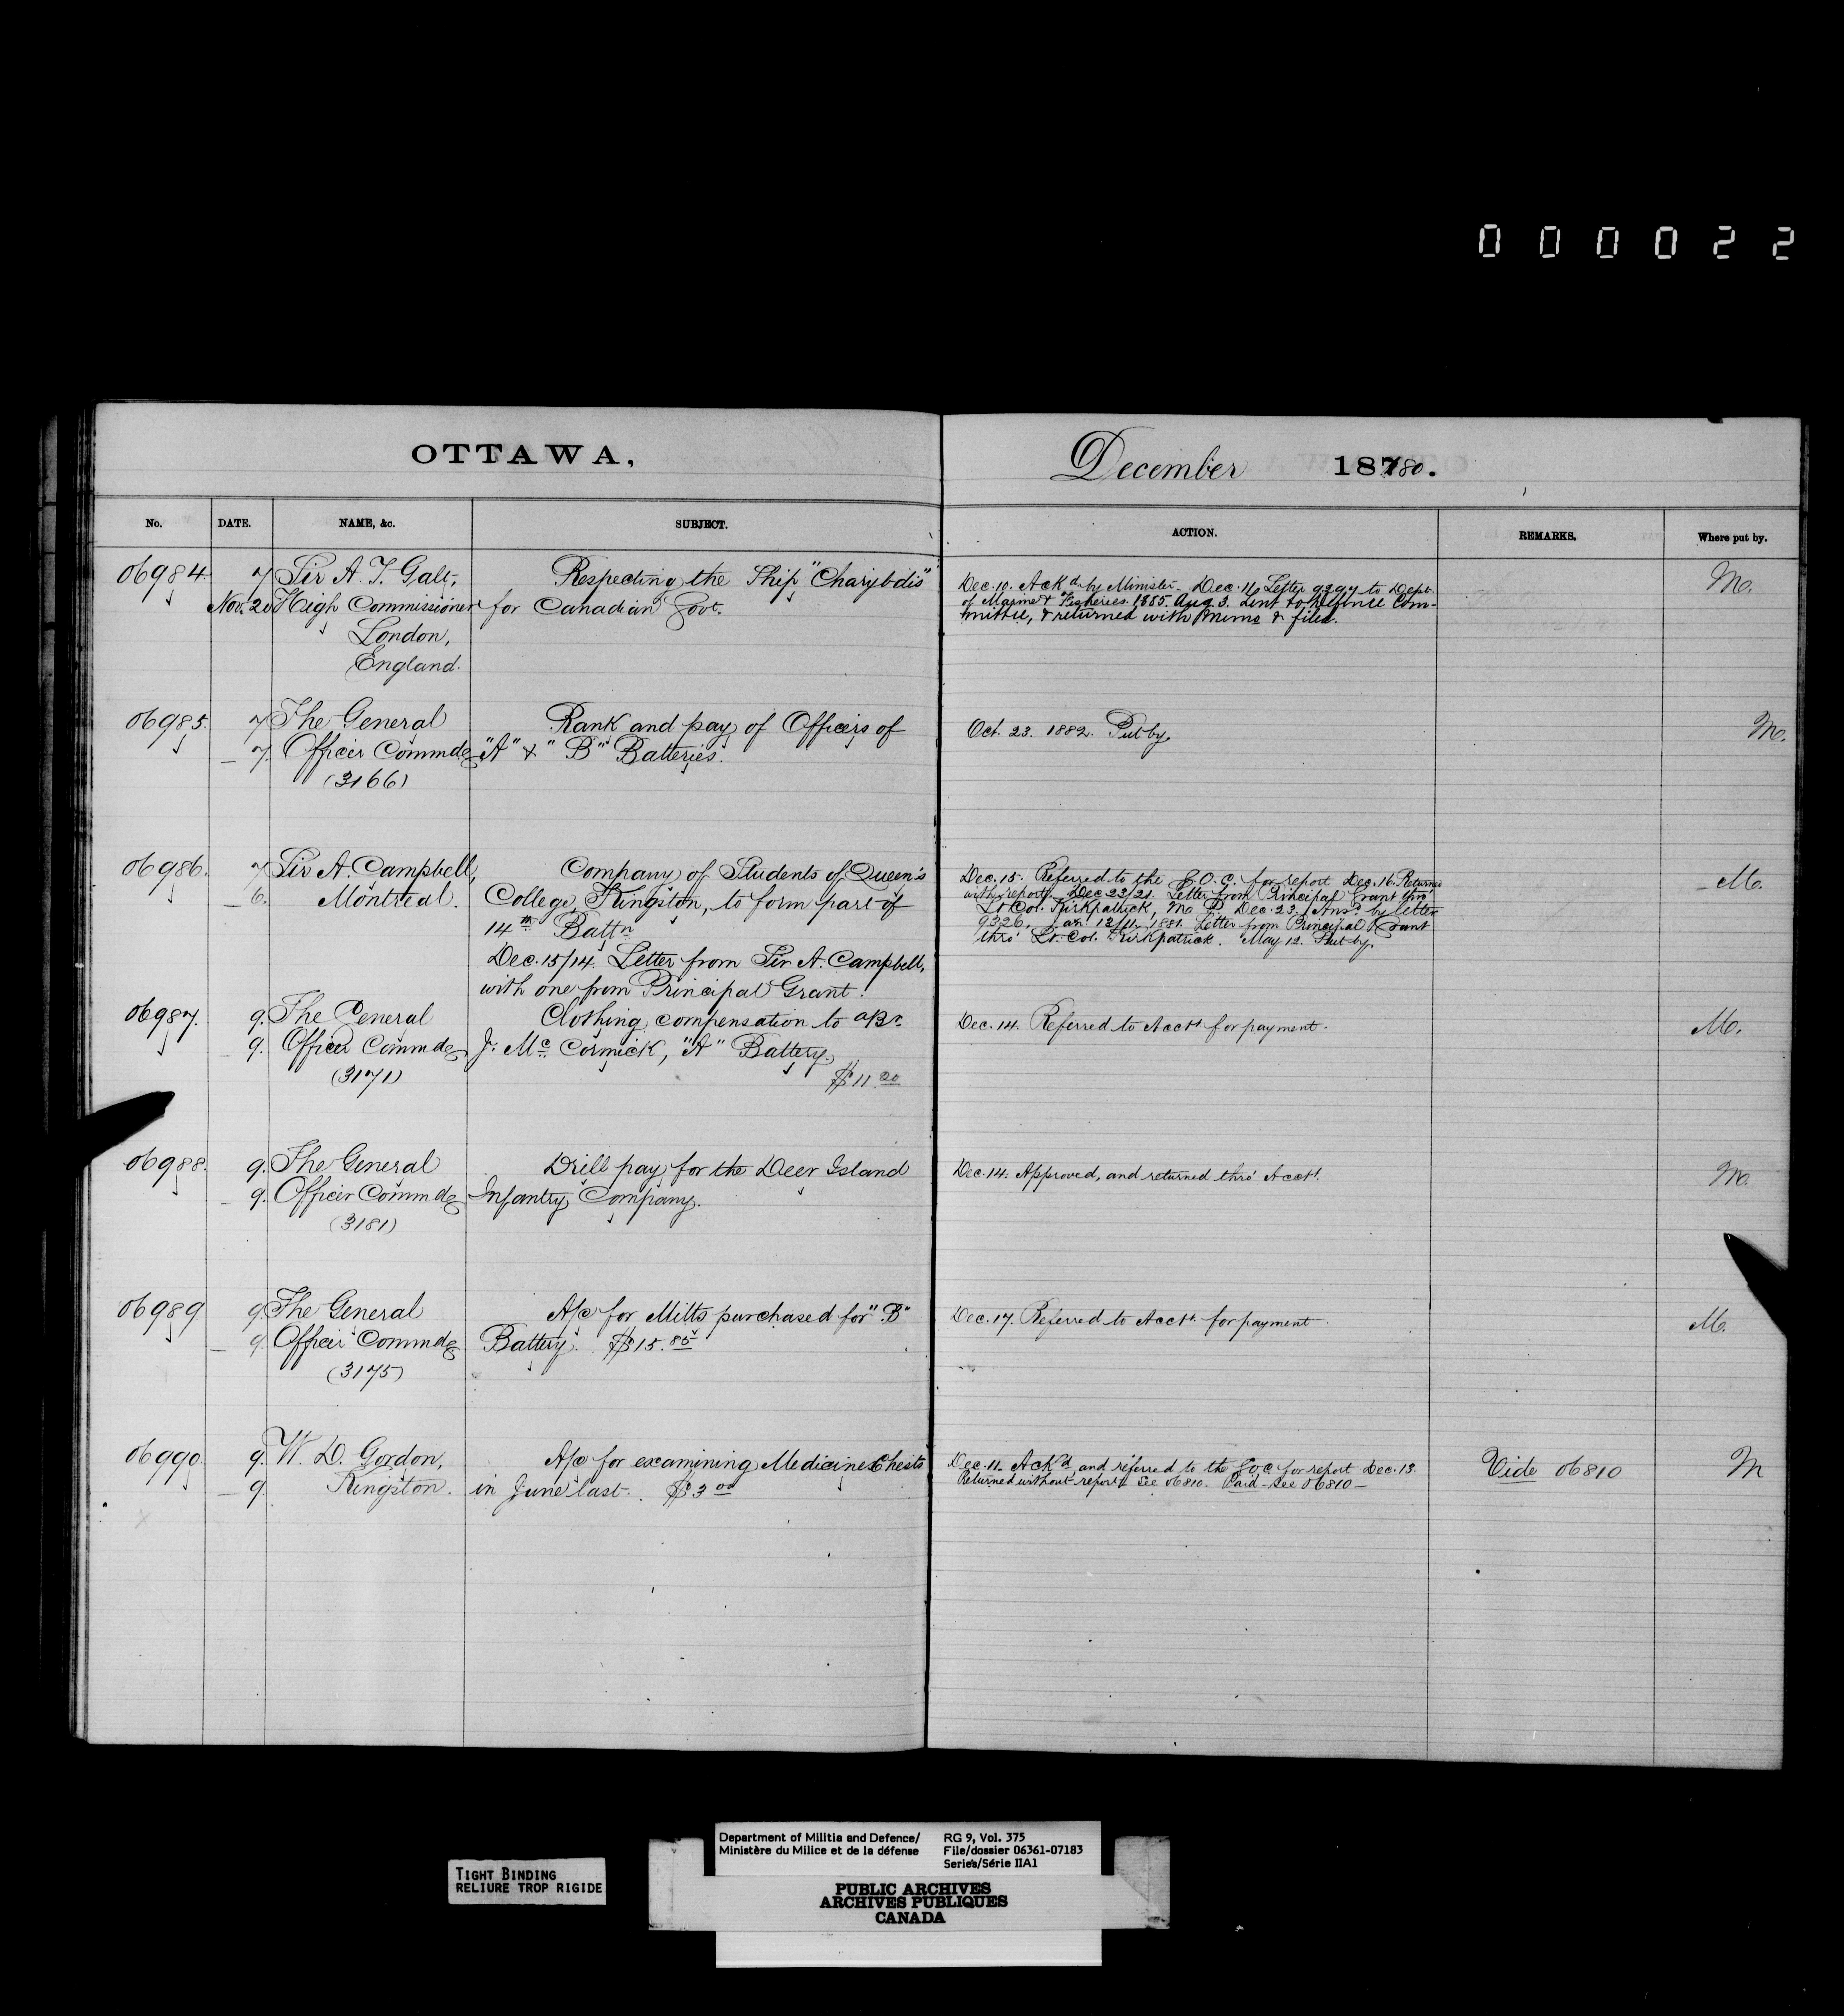 000022
OTTAWA,
December 18780.
No. DATE. NAME, &c. SUBJECT. ACTION. REMARKS. Where put by.
06984. 7 Sir A. T. Galt, Respecting the Ship "Charybdis"
Nov. 20 High Commissioner for Canadian Govt.
London,
England.
Dec. 10. Ackd. by Minister. Dec. 16 Letter to Dept.
of Marine & Fisheries. 1885. Aug 3. Sent to Defence Com-
mittee, & returned with memo & filed.
M.
06985. 7 The General Rank and pay of Officers of
— 7. Officer Commdg "A" & "B" Batteries.
(3166)
Oct. 23. 1882. Put by.
M.
06986. 7 Sir A. Campbell, Company of Students of Queen's
— 6. Montreal. College, Kingston, to form part of
14th Battn
Dec. 15/14. Letter from Sir A. Campbell,
with one from Principal Grant.
Dec. 15. Referred to the G.O.C. for report Dec. 16. Returned
with report. Dec 22/21. Letter from Principal Grant thro'
Lt Col. Kirkpatrick, M.P. Dec. 23. Ansd. by letter
9326. 12/11. 1881. Letter from Principal Grant
thro' Lt. Col. Kirkpatrick. May 12. Put by.
— M.
06987. 9. The General Clothing compensation to Br.
— 9. Officer Commdg J. McCormick, "A" Battery.
(3171) $11.20
Dec. 14. Referred to Acct. for payment.
M.
06988. 9. The General Drill pay for the Deer Island
— 9. Officer Commdg Infantry Company.
(3181)
Dec. 14. Approved, and returned thro' Acct.
M.
06989 9 The General A/c for Mitts purchased for "B"
— 9. Officer Commdg Battery. $15.85
(3175)
Dec. 17. Referred to Acct. for payment.
M.
06990 9. W. D. Gordon, A/c for examining Medicine Chests
— 9. Kingston. in June last. $3.00
Dec. 11. Ackd and referred to the G.O.C for report Dec. 13.
Returned without report. See 06810. Paid – See 06810 –
Vide 06810
M
TIGHT BINDING
RELIURE TROP RIGIDE
Department of Militia and Defence/
Ministère du Milice et de la défense
RG 9, Vol. 375
File/dossier 06361-07183
Series/Série IIA1
PUBLIC ARCHIVES
ARCHIVES PUBLIQUES
CANADA